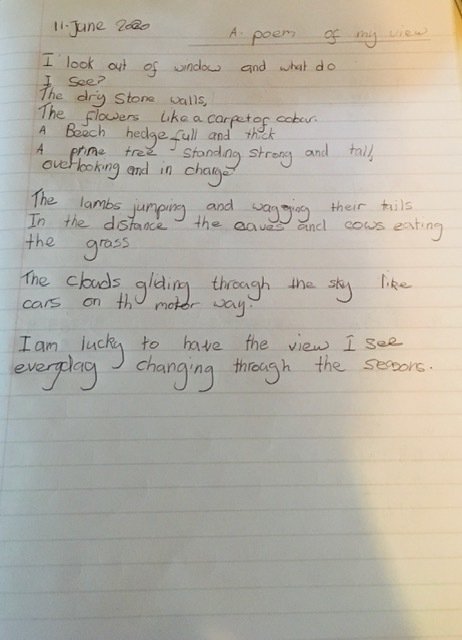 11. June 2020
A poem of my view
I look out of window and what do
I see?
The dry stone walls,
The flowers like a carpet of colour.
A Beech hedge full and thick
A prime tree standing strong and tall,
overlooking and in charge
The lambs jumping and wagging their tails
In the distance the eaves and cows eating
the grass
The clouds gliding through the sky like
cars on th motor way.
I am lucky to have the view I see
everyday changing through the seasons.